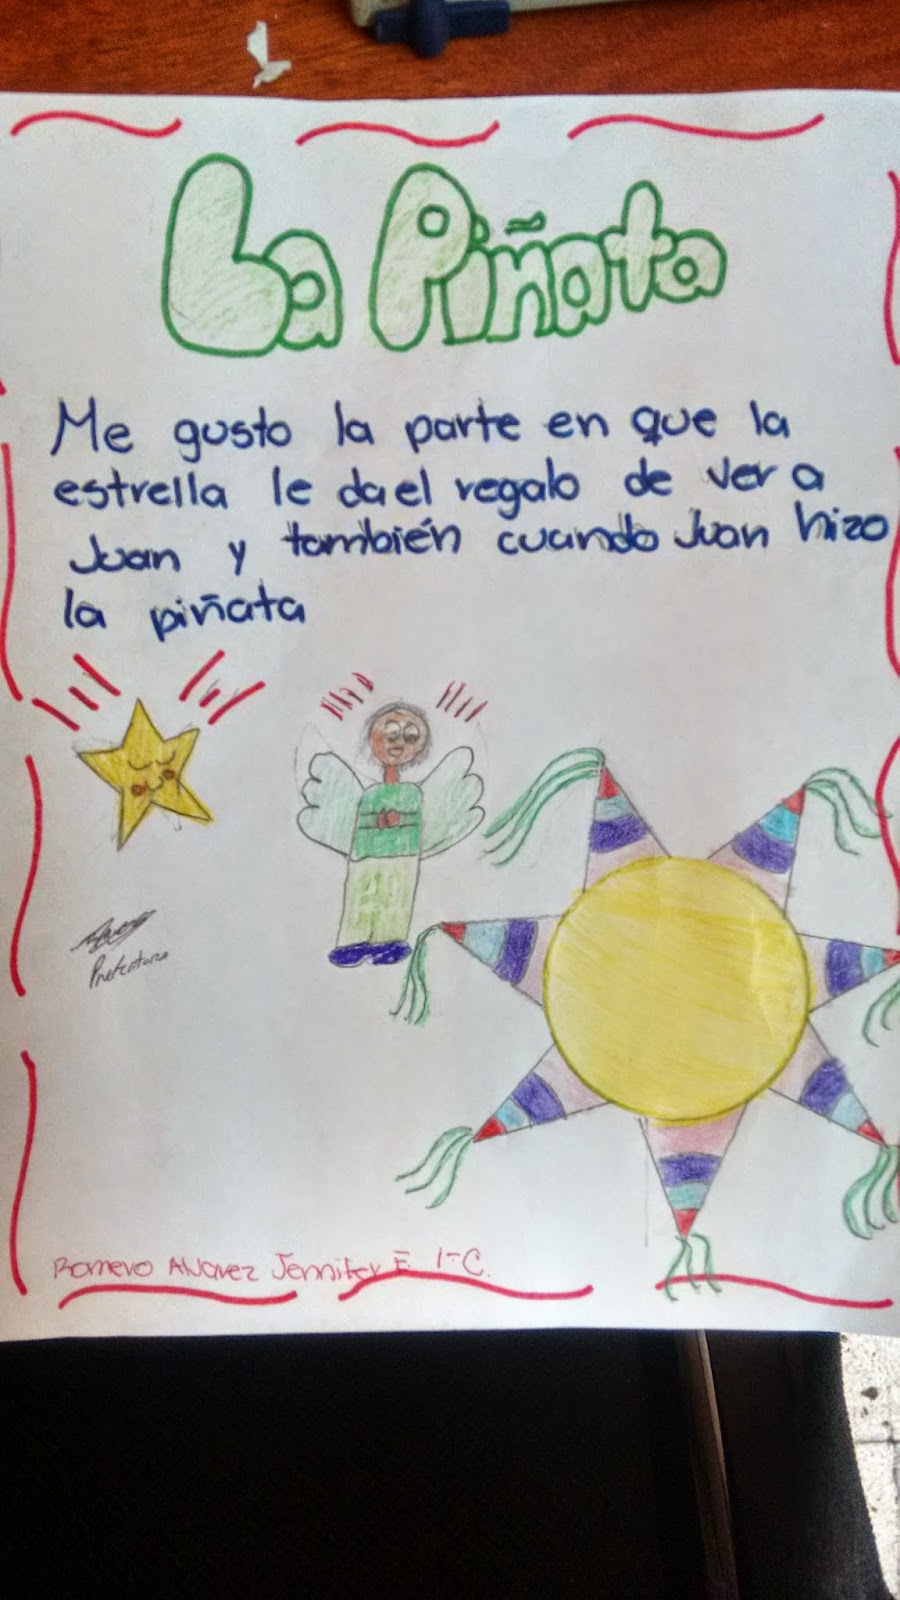 La Piñata
Me gusto la parte en que la
estrella le da el regalo de ver a
Juan y también cuando Juan hizo
la piñata
Romero Alvarez Jennifer E. 1-C.